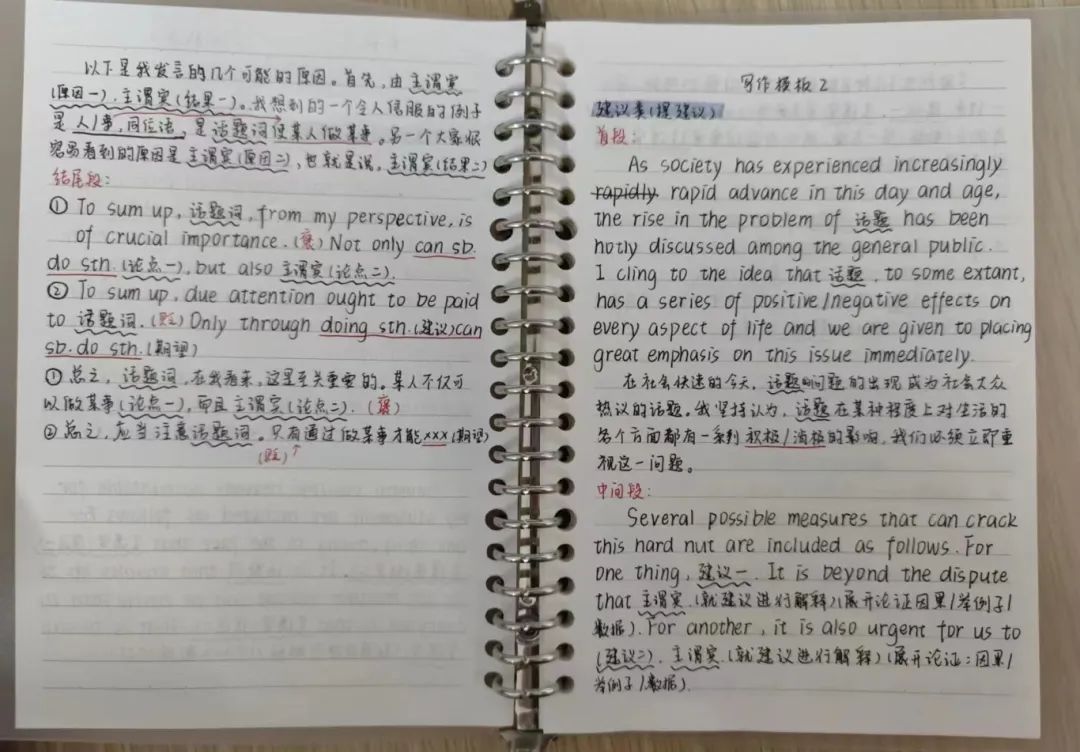 以下是我发言的几个可能的原因。首先,由主谓宾
(原因一),主谓宾(结果一)。我想到的一个令人信服的例子
是人/事,同位语,是话题词使某人做某事。另一个大家很
容易看到的原因是主谓宾(原因二),也就是说,主谓宾(结果二)
结尾段:
① To sum up, 话题词, from my perspective, is
of crucial importance.(褒) Not only can sb.
do sth.(论点一), but also 主谓宾(论点二).
② To sum up, due attention ought to be paid
to 话题词.(贬) Only through doing sth.(建议)can
sb. do sth.(期望)
① 总之,话题词,在我看来,这是至关重要的。某人不仅可
以做某事(论点一),而且主谓宾(论点二).(褒)
② 总之,应当注意话题词。只有通过做某事才能xxx(期望)
(贬)↑
写作模板2
建议类(提建议)
首段:
As society has experienced increasingly
rapidly rapid advance in this day and age,
the rise in the problem of 话题 has been
hotly discussed among the general public.
I cling to the idea that 话题, to some extant,
has a series of positive/negative effects on
every aspect of life and we are given to placing
great emphasis on this issue immediately.
在社会快速的今天,话题的问题的出现成为社会大众
热议的话题。我坚持认为,话题在某种程度上对生活的
各个方面都有一系列积极/消极的影响,我们必须立即重
视这一问题。
中间段:
Several possible measures that can crack
this hard nut are included as follows. For
one thing, 建议一. It is beyond the dispute
that 主谓宾.(就建议进行解释)(展开论证因果/举例子/
数据). For another, it is also urgent for us to
(建议二). 主谓宾.(就建议进行解释)(展开论证:因果/
举例子/数据).